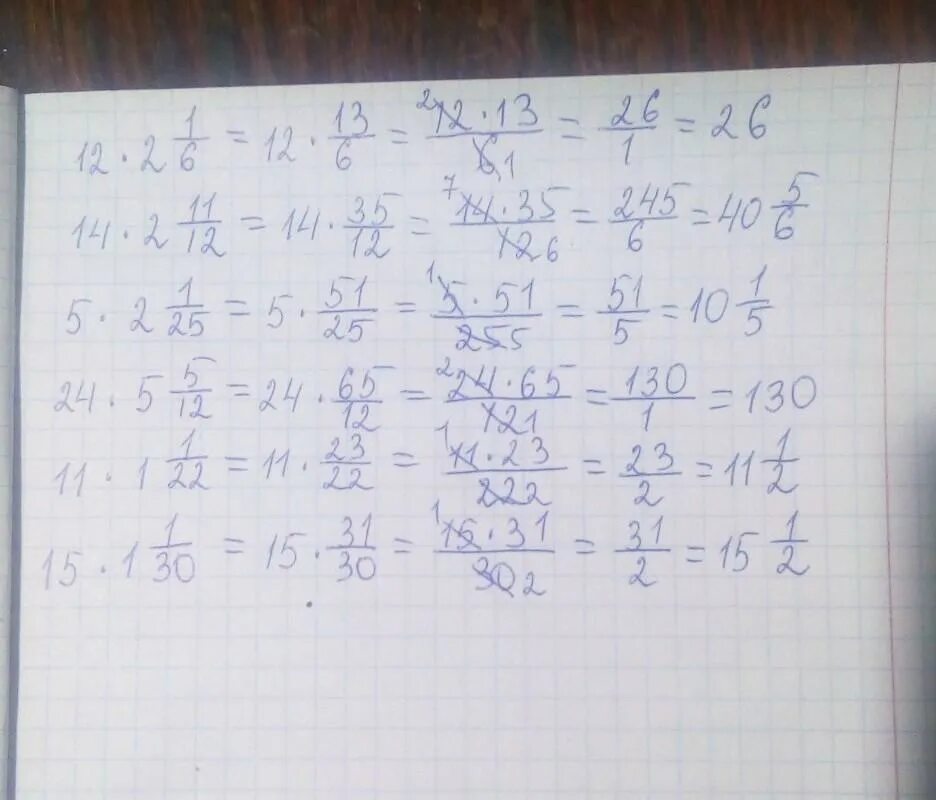 12 · 2 1/6 = 12 · 13/6 = ²12 · 13/6 1 = 26/1 = 26
14 · 2 11/12 = 14 · 35/12 = ⁷14 · 35/12 6 = 245/6 = 40 5/6
5 · 2 1/25 = 5 · 51/25 = ¹5 · 51/25 5 = 51/5 = 10 1/5
24 · 5 5/12 = 24 · 65/12 = ²24 · 65/12 1 = 130/1 = 130
11 · 1 1/22 = 11 · 23/22 = ¹11 · 23/22 2 = 23/2 = 11 1/2
15 · 1 1/30 = 15 · 31/30 = ¹15 · 31/30 2 = 31/2 = 15 1/2